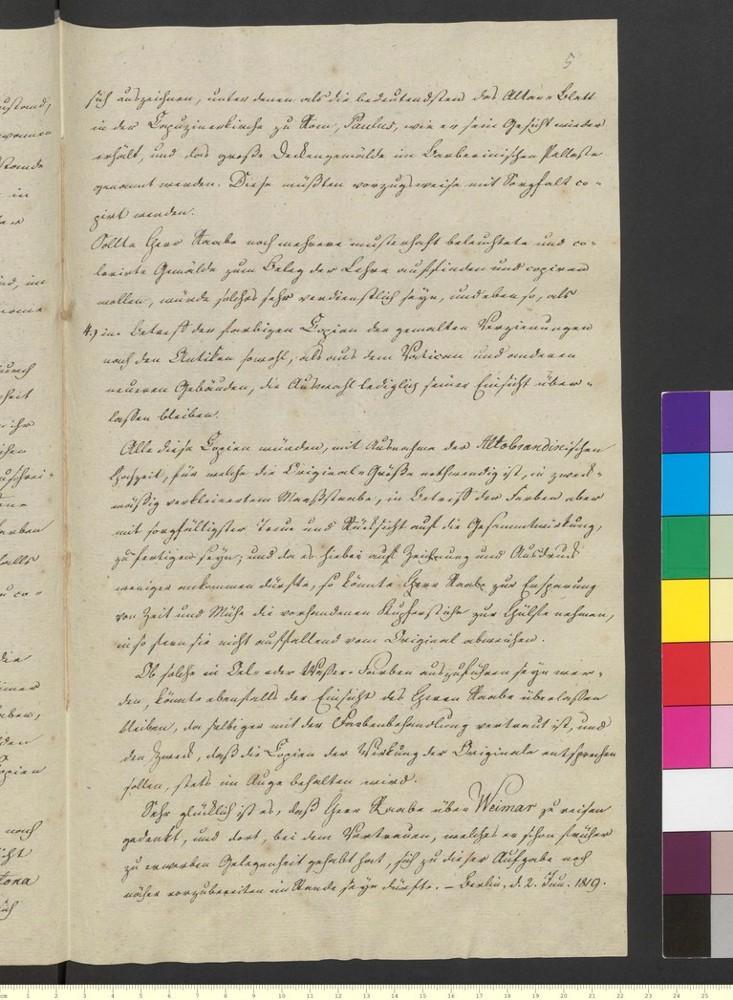 5
sich auszeichnen, unter denen als die bedeutendsten das Altar-Blatt
in der Capuzinerkirche zu Rom, Paulus, wie er sein Gesicht wieder
erhält, und das große Deckengemälde im Barberinischen Pallaste
genannt werden. Diese müßten vorzugsweise mit Sorgfalt co-
pirt werden.
Sollte Herr Raabe noch mehrere musterhaft beleuchtete und co-
lorirte Gemälde zum Beleg der Lehre auffinden und copiren
wollen, würde solches sehr verdienstlich seyn, und eben so, als
4.) in Betreff der farbigen Copien der gemalten Verzierungen
nach den Antiken sowohl, als aus dem Vatican und anderen
neueren Gebäuden, die Auswahl lediglich seiner Einsicht über-
lassen bleiben.
Alle diese Copien würden, mit Ausnahme der Altobrandinischen
Hochzeit, für welche die Original-Größe nothwendig ist, in zweck-
mäßig verkleinertem Maaßstaabe, in Betreff der Farben aber
mit sorgfältigster Treue und Rücksicht auf die Gesammtwirkung,
zu fertigen seyn; und da es hiebei auf Zeichnung und Ausdruck
weniger ankommen dürfte, so könnte Herr Raabe zur Ersparung
von Zeit und Mühe die vorhandenen Kupferstiche zur Hülfe nehmen,
in so fern sie nicht auffallend vom Original abweichen.
Ob solche in Oel- oder Wasser-Farben auszuführen seyn wer-
den, könnte ebenfalls der Einsicht des Herrn Raabe überlassen
bleiben, da selbiger mit der Farbenbehandlung vertraut ist, und
den Zweck, daß die Copien der Wirkung der Originale entsprechen
sollen, stets im Auge behalten wird.
Sehr glücklich ist es, daß Herr Raabe über Weimar zu reisen
gedenkt, und dort, bei dem Vertrauen, welches er schon früher
zu erwerben Gelegenheit gehabt hat, sich zu dieser Aufgabe noch
näher vorzubereiten im Stande seyn dürfte. – Berlin, d. 2. Jun. 1819.